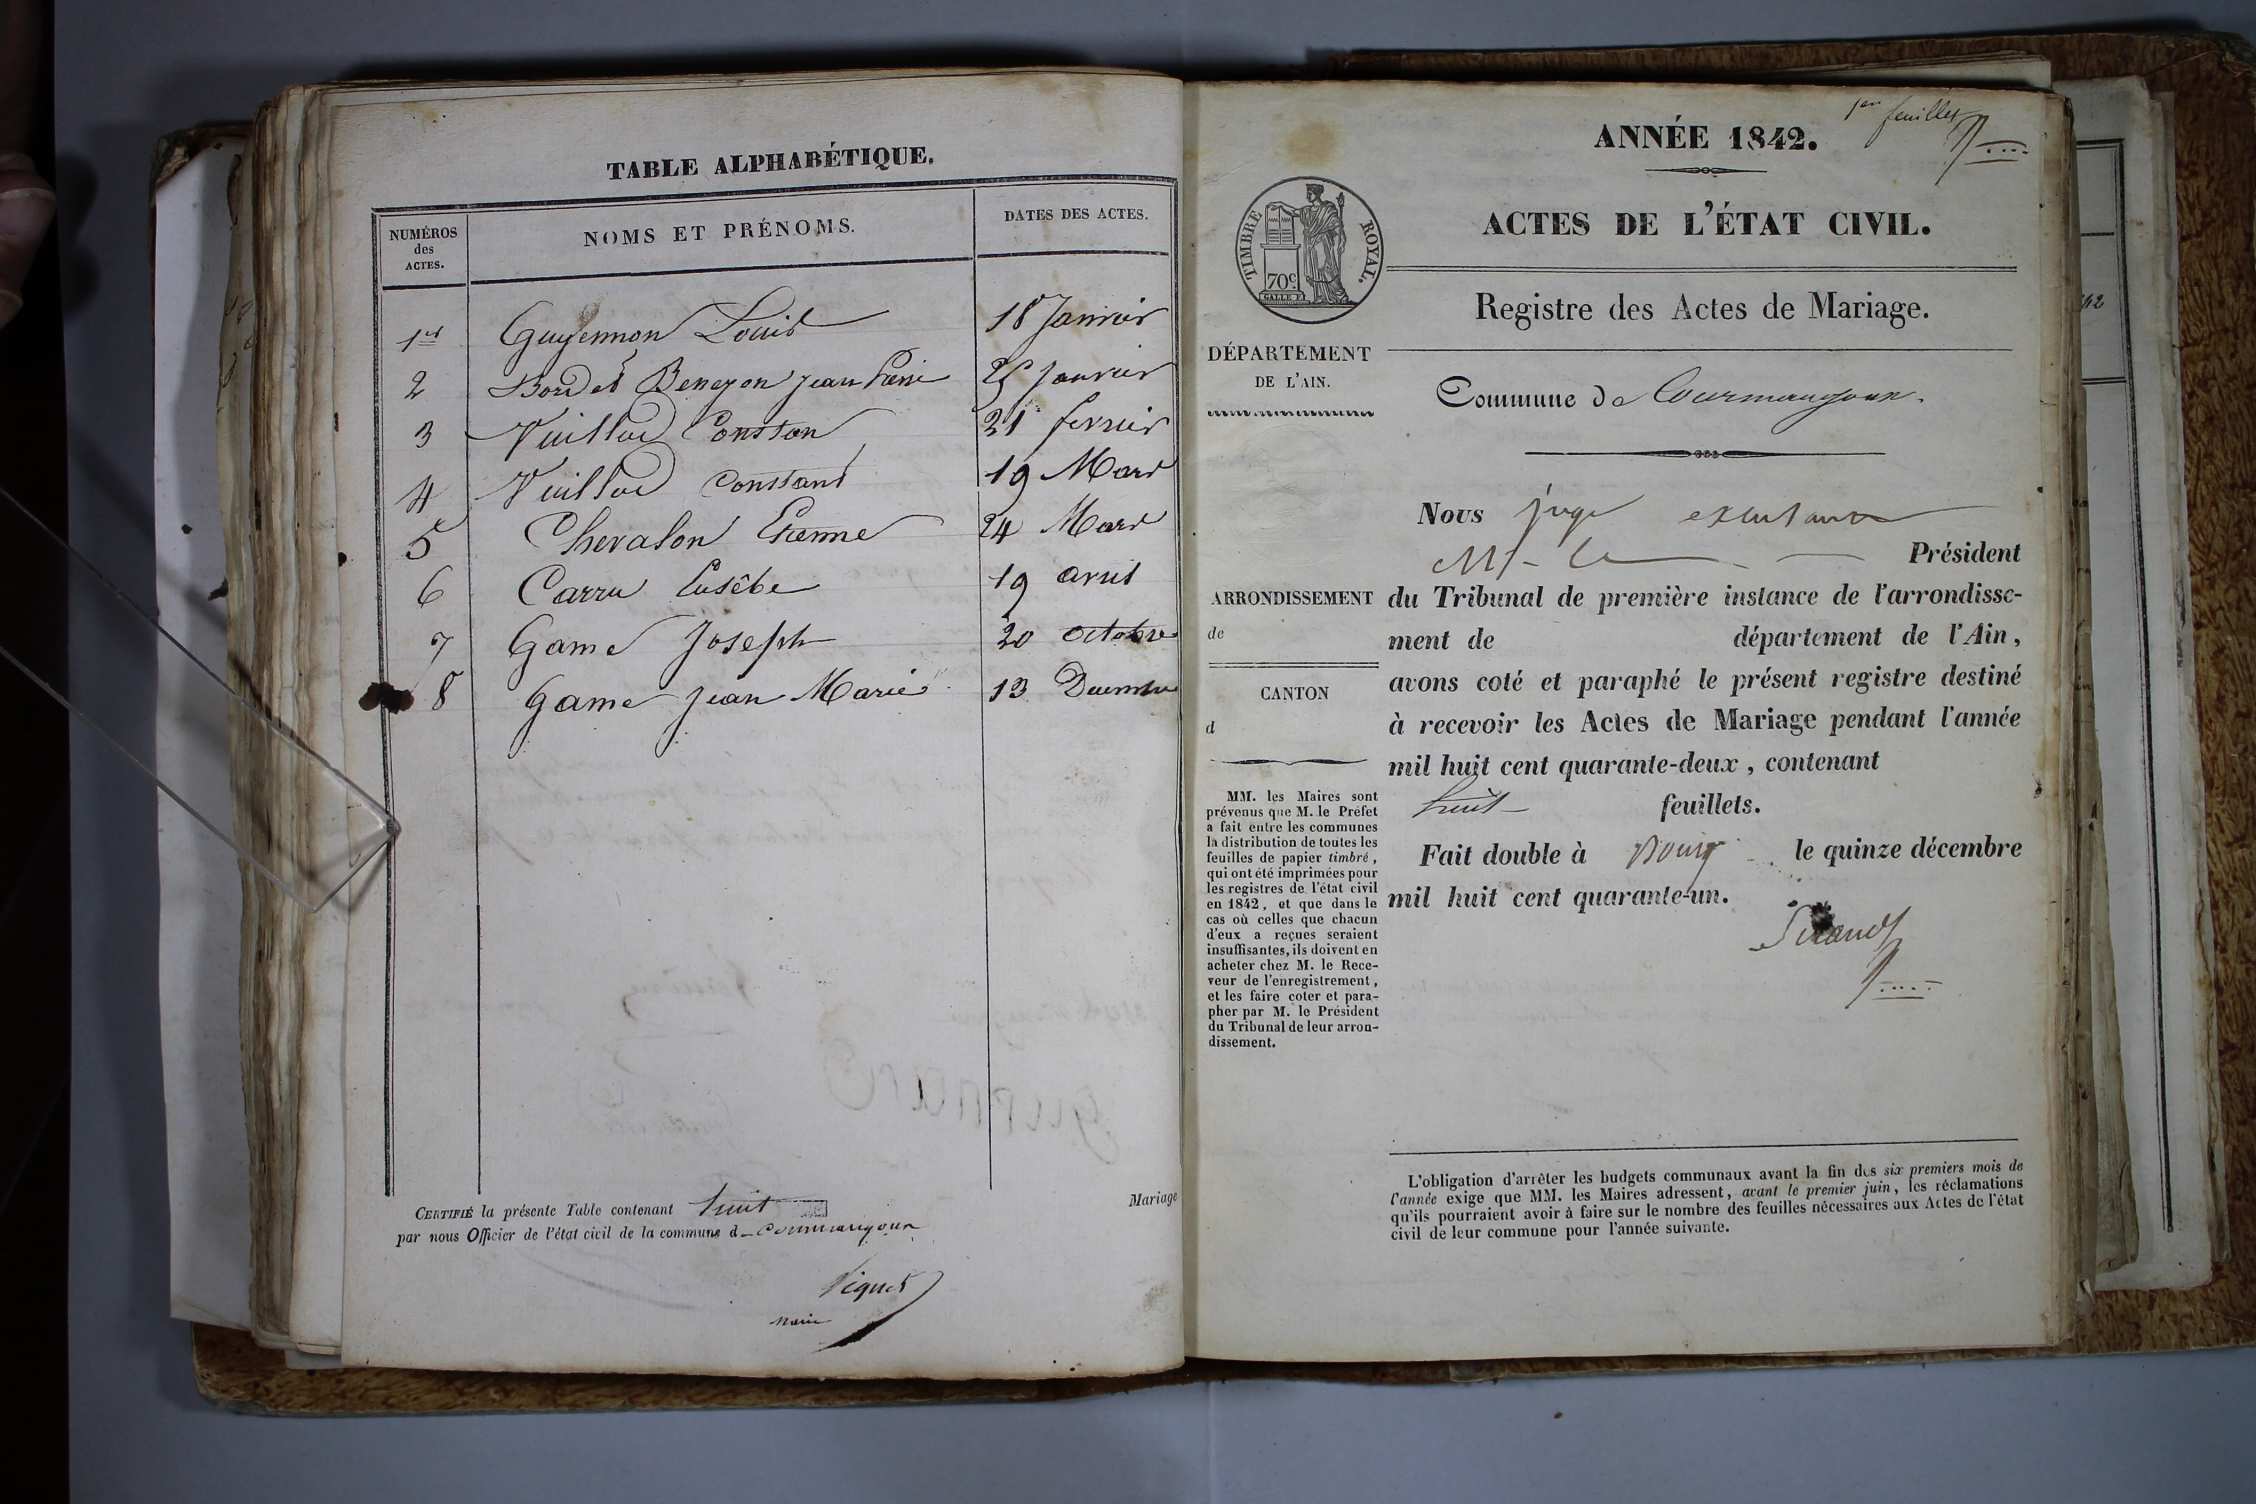 TABLE ALPHABÉTIQUE.
NUMÉROS des ACTES. NOMS ET PRÉNOMS. DATES DES ACTES.
1er Guyennon Louis 18 Janvier
2 Bondet Benezon jean Pierre 25 Janvier
3 Vuillod Constan 21 fevrier
4 Vuillod Constant 19 Mars
5 Chevalon Etienne 24 Mars
6 Carru Eusèbe 19 avril
7 Game Joseph 20 octobre
8 Game jean Marie 13 Decembre
Mariage
CERTIFIÉ la présente Table contenant huit
par nous Officier de l'état civil de la commune d courmangoux
Piquet
maire
1er feuillet
ANNÉE 1842.
ACTES DE L'ÉTAT CIVIL.
TIMBRE ROYAL.
70c
GALLE F.
Registre des Actes de Mariage.
DÉPARTEMENT
DE L'AIN.
Commune de Courmangoux.
ARRONDISSEMENT
de
CANTON
d
Nous juge
Président
du Tribunal de première instance de l'arrondisse-
ment de département de l'Ain,
avons coté et paraphé le présent registre destiné
à recevoir les Actes de Mariage pendant l'année
mil huit cent quarante-deux, contenant
huit feuillets.
Fait double à Bourg le quinze décembre
mil huit cent quarante-un.
MM. les Maires sont
prévenus que M. le Préfet
a fait entre les communes
la distribution de toutes les
feuilles de papier timbré,
qui ont été imprimées pour
les registres de l'état civil
en 1842, et que dans le
cas où celles que chacun
d'eux a reçues seraient
insuffisantes, ils doivent en
acheter chez M. le Rece-
veur de l'enregistrement,
et les faire coter et para-
pher par M. le Président
du Tribunal de leur arron-
dissement.
L'obligation d'arrêter les budgets communaux avant la fin des six premiers mois de
l'année exige que MM. les Maires adressent, avant le premier juin, les réclamations
qu'ils pourraient avoir à faire sur le nombre des feuilles nécessaires aux Actes de l'état
civil de leur commune pour l'année suivante.